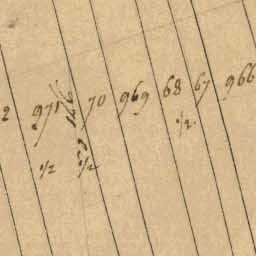 2 971 70 969 68 67 966
1/2 1/2 1/2